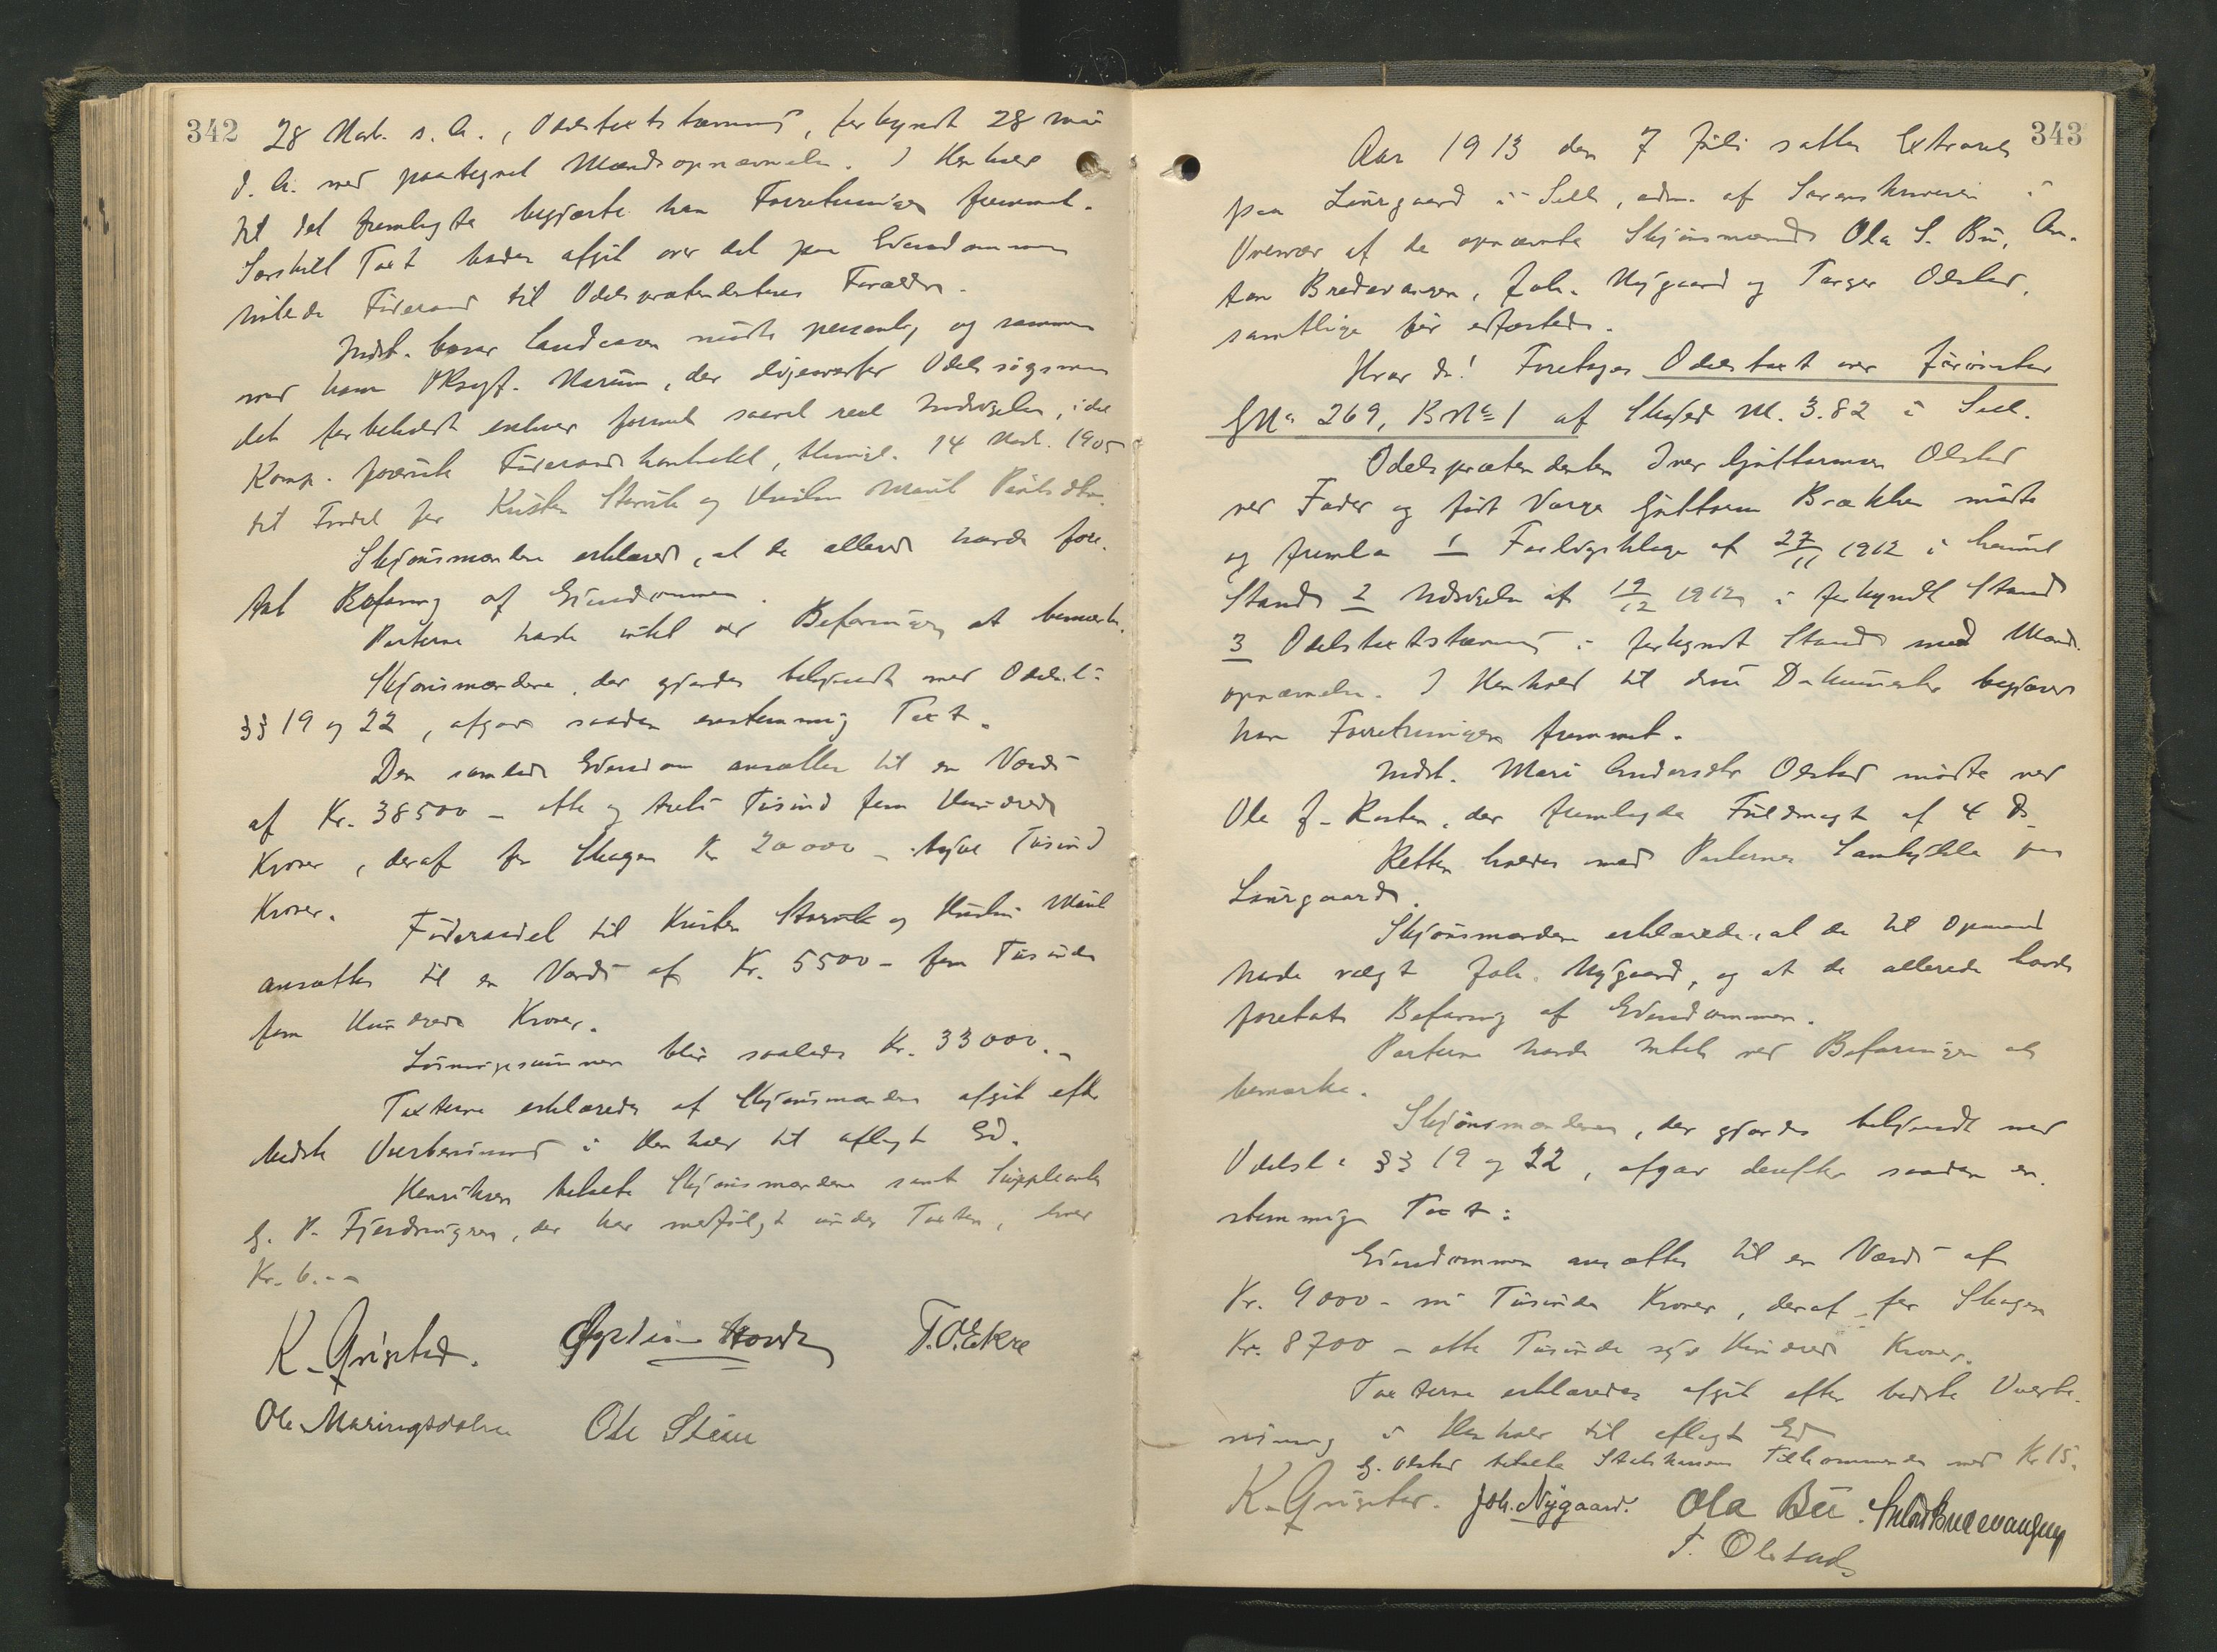 342
28 Marts s. A., Odelstakststævning, forkyndt 28 mai
d. A. med paategnet Mændsopnævnelse. I Henhold
til det fremlagte begjærte han Forretningen fremmet.
Særskilt Taxt bedes afgit over det paa Eiendommen
hvilende Føderaad til Odelsprætendentens Forældre.
Indst. Landeaaen mødte personlig og sammen
med ham Oksagf. Narum, der ligeoverfor Odelssøgsmaa
det forbeholdt enhver formel saavel reel Indsigelse, idet
Komp. foreviste Føderaadskontrakt, thingl. 14 Marts 1905
til Fordel for Kristen Storvik og Hustru Marit Paulsdtr.
Skjønsmændene erklærede, at de allerede havde fore-
tat Befaring af Eiendommen.
Parterne havde intet ved Befaringen at bemærke.
Skjønsmændene, der gjordes bekjendt med Odelsl:
§§ 19 og 22, afgav saadan enstemmig Taxt.
Den samlede Eiendom ansættes til en Værdi
af Kr. 38500 – otte og tredi Tusind fem Hundrede
Kroner, deraf for Skogen Kr 20000 – tyve Tusind
Kroner.
Føderaadet til Kristen Storvik og Hustru Marit
ansættes til en Værdi af Kr. 5500 – fem Tusinde
fem Hundrede Kroner.
Løsningssummen blir saaledes Kr. 33000.–
Taxterne erklæredes af Skjønsmændene afgit efter
bedste Overbevisning i Henhold til aflagt Ed.
Henriksen betalte Skjønsmændene samt Suppleanten
G. P. Fjerdingren, der har medfulgt under Taxten, hver
Kr. 6.–
K. Grisstad. Øystein Hovde T. O. Ekre
Ole Maringsdalen Ole Steine
343
Aar 1913 den 7 Juli sattes Extraret
paa Laurgaard i Sell, adm. af Sorenskriveren i
Overvær af de opnævnte Skjønsmænd Ola S. Bu, An-
ton Bredevangen, Joh. Nygaard og Torger Olstad,
samtlige før edfæstede.
Hvor da! Foretages Odelstaxt over
GNo 269, BNo 1 af Skyld M. 3.82 i Sell.
Odelsprætendenten Iver Guttormsen Olstad
ved Fader og født Værge Guttorm Brækken mødte
og fremla 1 Forligsklage af 27/11 1912 i hævet
Stand 2 Udsigelse af 19/12 1912 i forkyndt Stand
3 Odelstakststævning i forkyndt Stand med Mænd-
opnævnelse. I Henhold til disse Dokumenter begjæres
han Forretningen fremmet.
Indst. Mari Andersdtr Olstad mødte ved
Ole J. Rusten, der fremlagde Fuldmagt af 4 ds.
Retten holdes med Parternes Samtykke paa
Laurgaard.
Skjønsmændene erklærede, at de til Opmand
havde valgt Joh. Nygaard, og at de allerede havde
foretat Befaring af Eiendommen.
Parterne havde intet ved Befaringen at
bemærke.
Skjønsmændene, der gjordes bekjendt med
Odelsl: §§ 19 og 22, afgav derefter saadan en-
stemmig Taxt:
Eiendommen ansættes til en Værdi af
Kr. 9000 – ni Tusinde Kroner, deraf for Skogen
Kr. 8700 – otte Tusinde syv Hundrede Kroner.
Taxterne erklæredes afgit efter bedste Overbe-
visning i Henhold til aflagt Ed
G. Olstad betalte Statskassens Tilkommende med Kr 15.
K. Grisstad. Joh. Nygaard. Ola Bu. Anton Bredevangen
T. Olstad